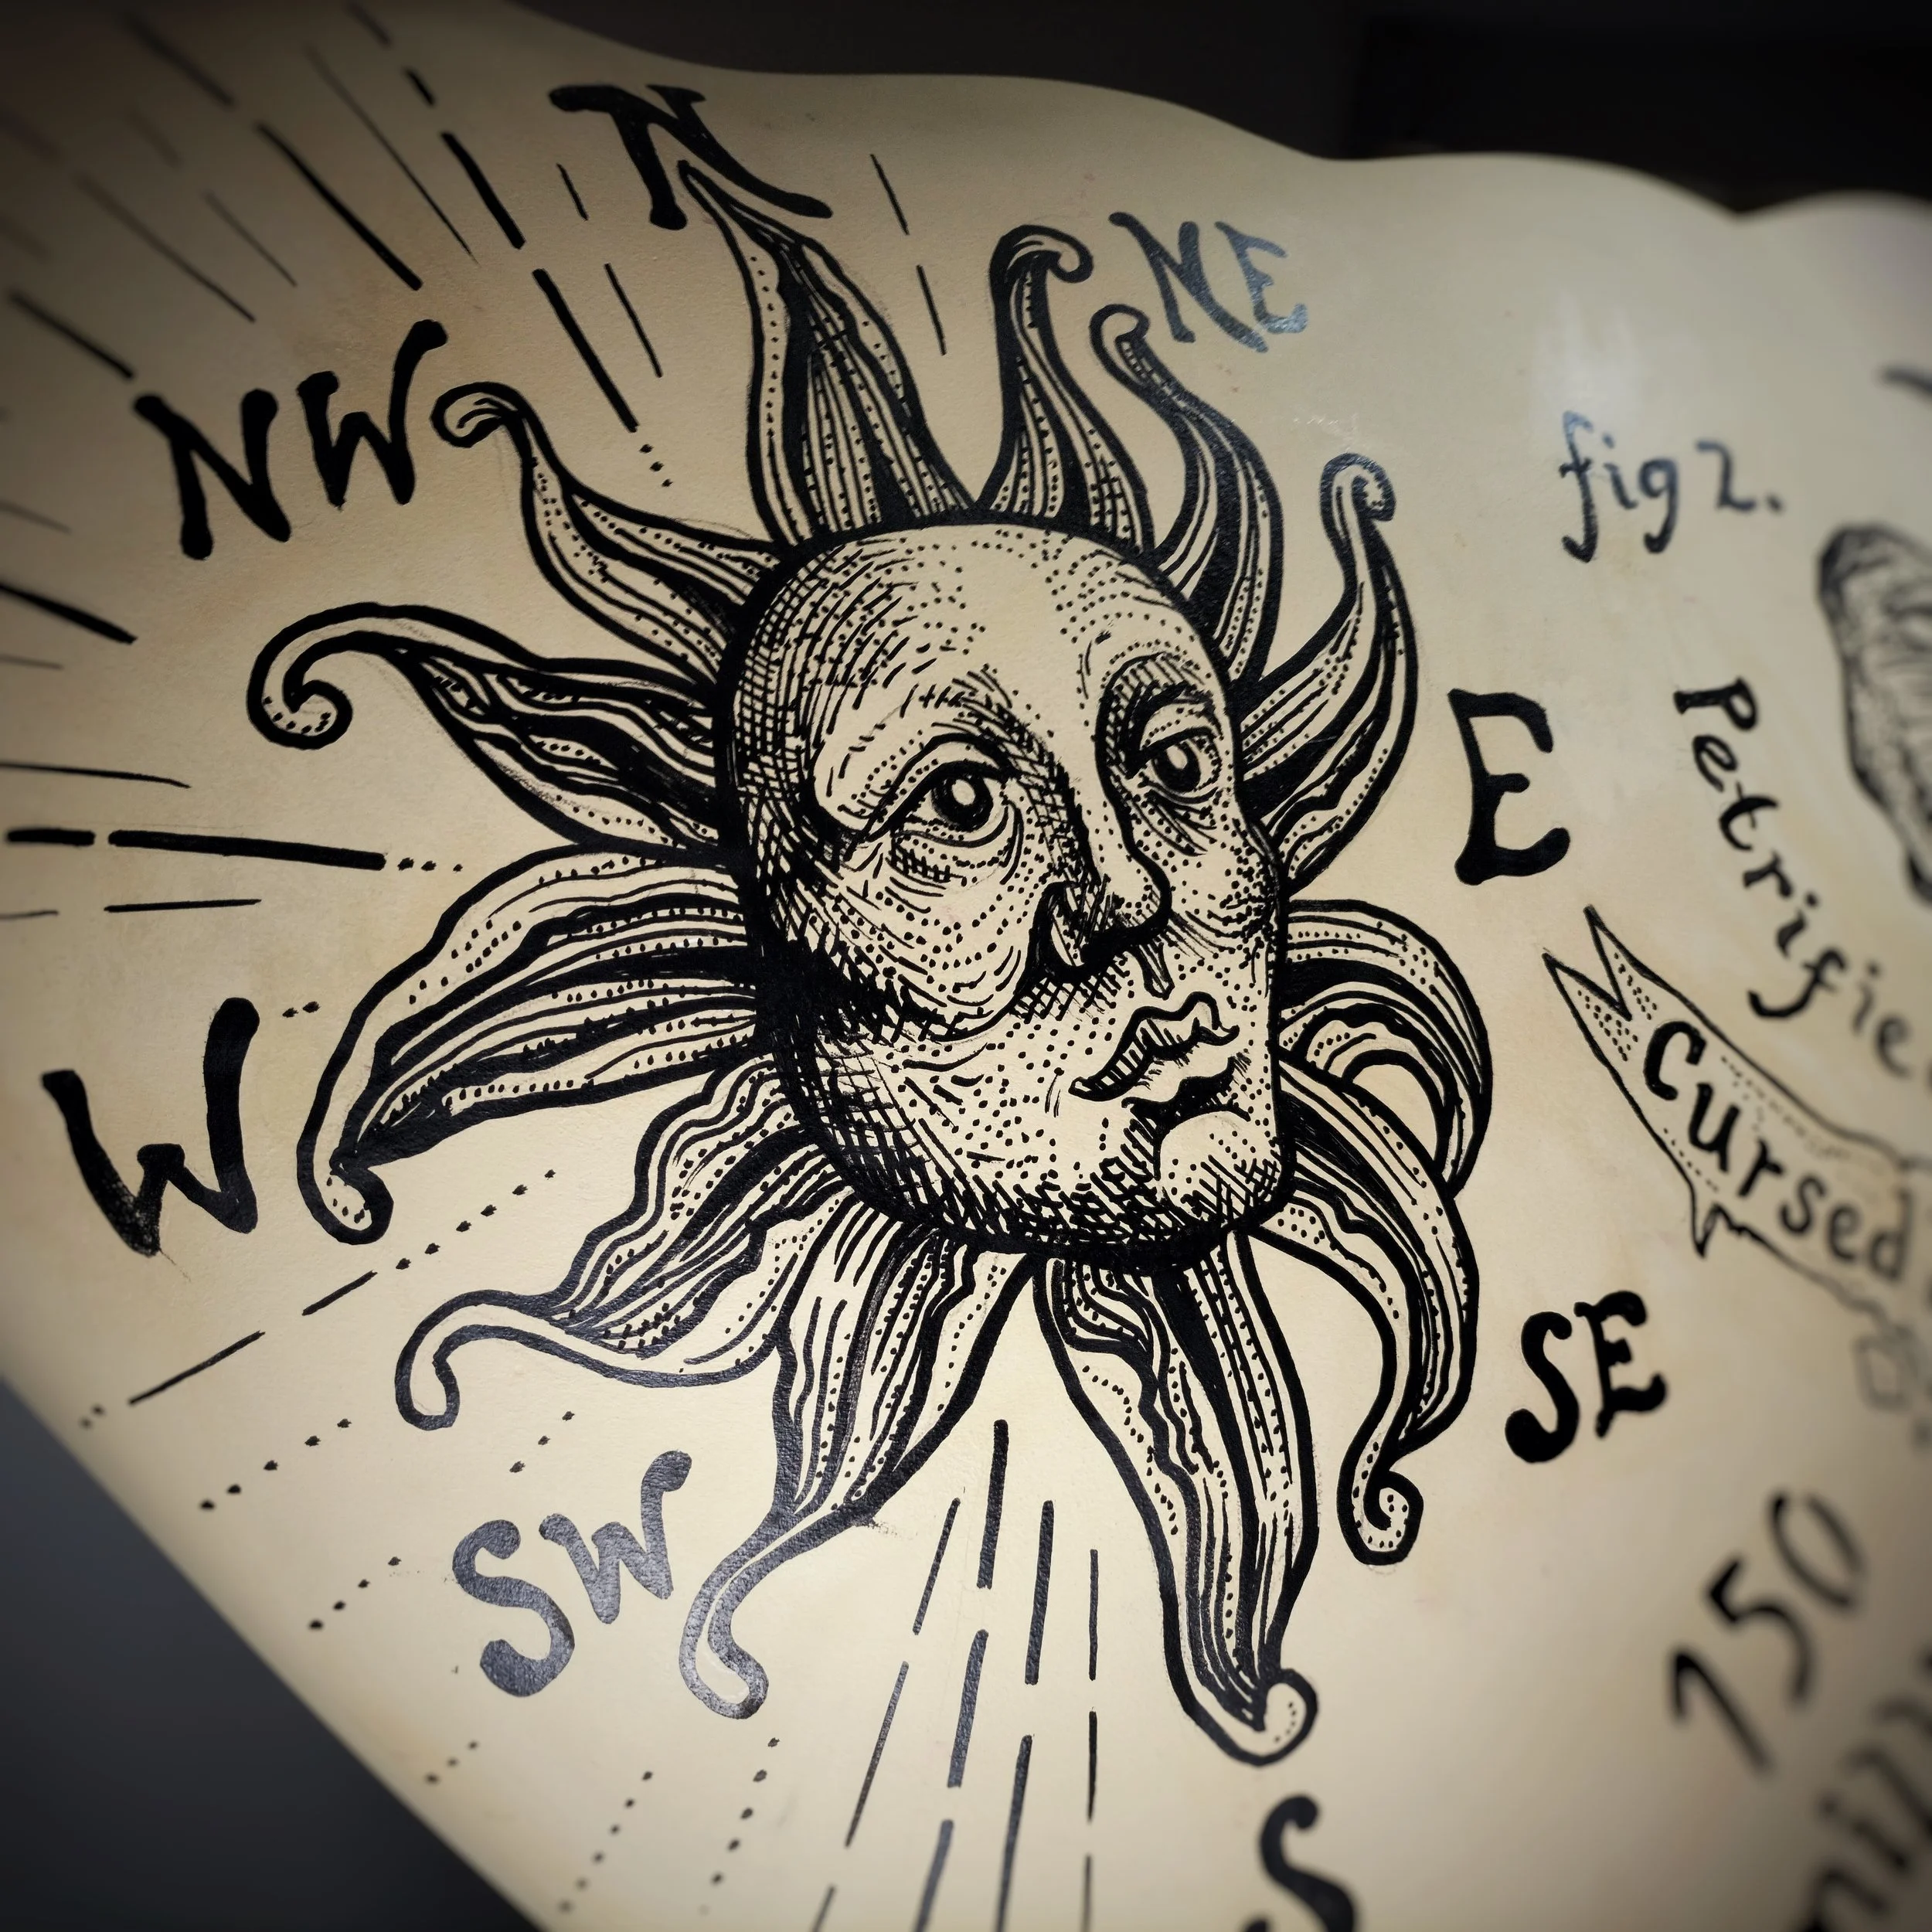 N
NE
NW
fig 2.
E
Petrifie
W
Cursed
SE
SW
150
S